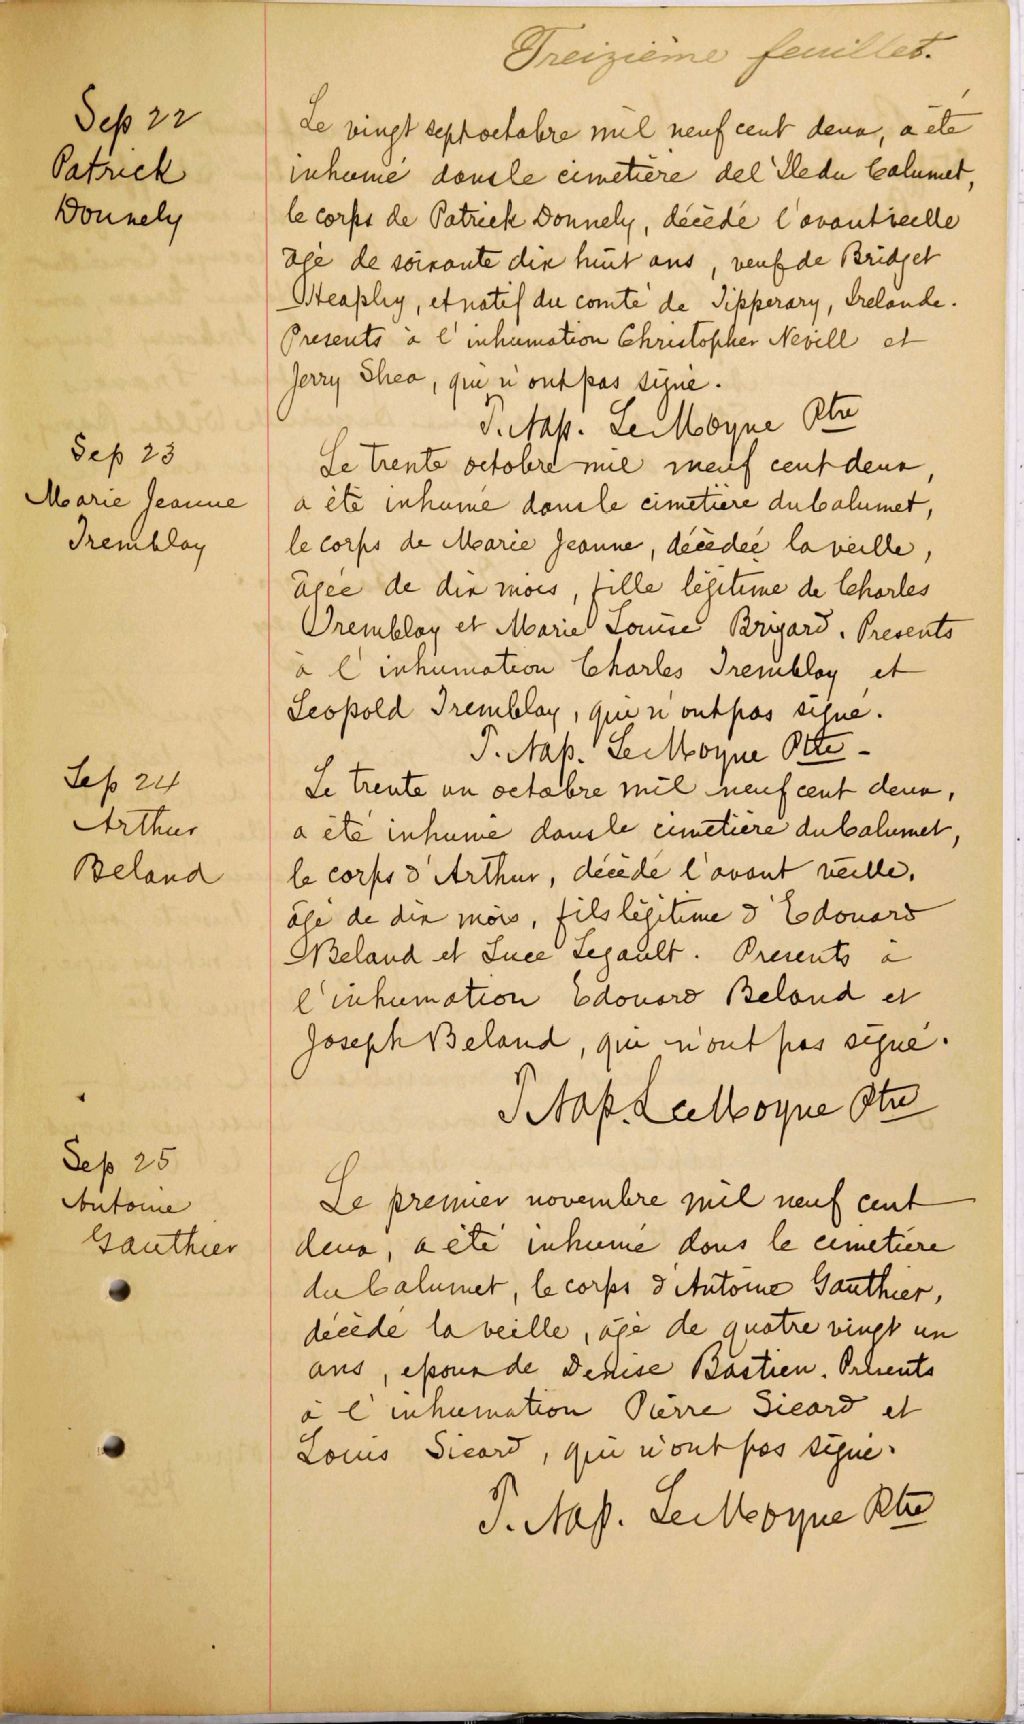 Treizième feuillet.
Sep 22
Patrick
Donnely
Le vingt sept octobre mil neuf cent deux, a été
inhumé dans le cimetière de l'Ile du Calumet,
le corps de Patrick Donnely, décédé l'avant veille
âgé de soixante dix huit ans, veuf de Bridget
Heaphy, et natif du comté de Tipperary, Irelande.
Presents à l'inhumation Christopher Nevill et
Jerry Shea, qui n'ont pas signé.
P. Nap. LeMoyne Ptre
Sep 23
Marie Jeanne
Tremblay
Le trente octobre mil neuf cent deux,
a été inhumé dans le cimetière du Calumet,
le corps de Marie Jeanne, décédée la veille,
âgée de dix mois, fille légitime de Charles
Tremblay et Marie Louise Brizard. Presents
à l'inhumation Charles Tremblay et
Leopold Tremblay, qui n'ont pas signé.
P. Nap. LeMoyne Ptre -
Sep 24
Arthur
Beland
Le trente un octobre mil neuf cent deux,
a été inhumé dans le cimetière du Calumet,
le corps d'Arthur, décédé l'avant veille.
âgé de dix mois, fils légitime d'Edouard
Beland et Luce Legault. Presents à
l'inhumation Edouard Beland et
Joseph Beland, qui n'ont pas signé.
P. Nap. LeMoyne Ptre
Sep 25
Antoine
Gauthier
Le premier novembre mil neuf cent
deux, a été inhumé dans le cimetière
du Calumet, le corps d'Antoine Gauthier,
décédé la veille, âgé de quatre vingt un
ans, epoux de Denise Bastien. Présents
à l'inhumation Pierre Sicard et
Louis Sicard, qui n'ont pas signé.
P. Nap. LeMoyne Ptre